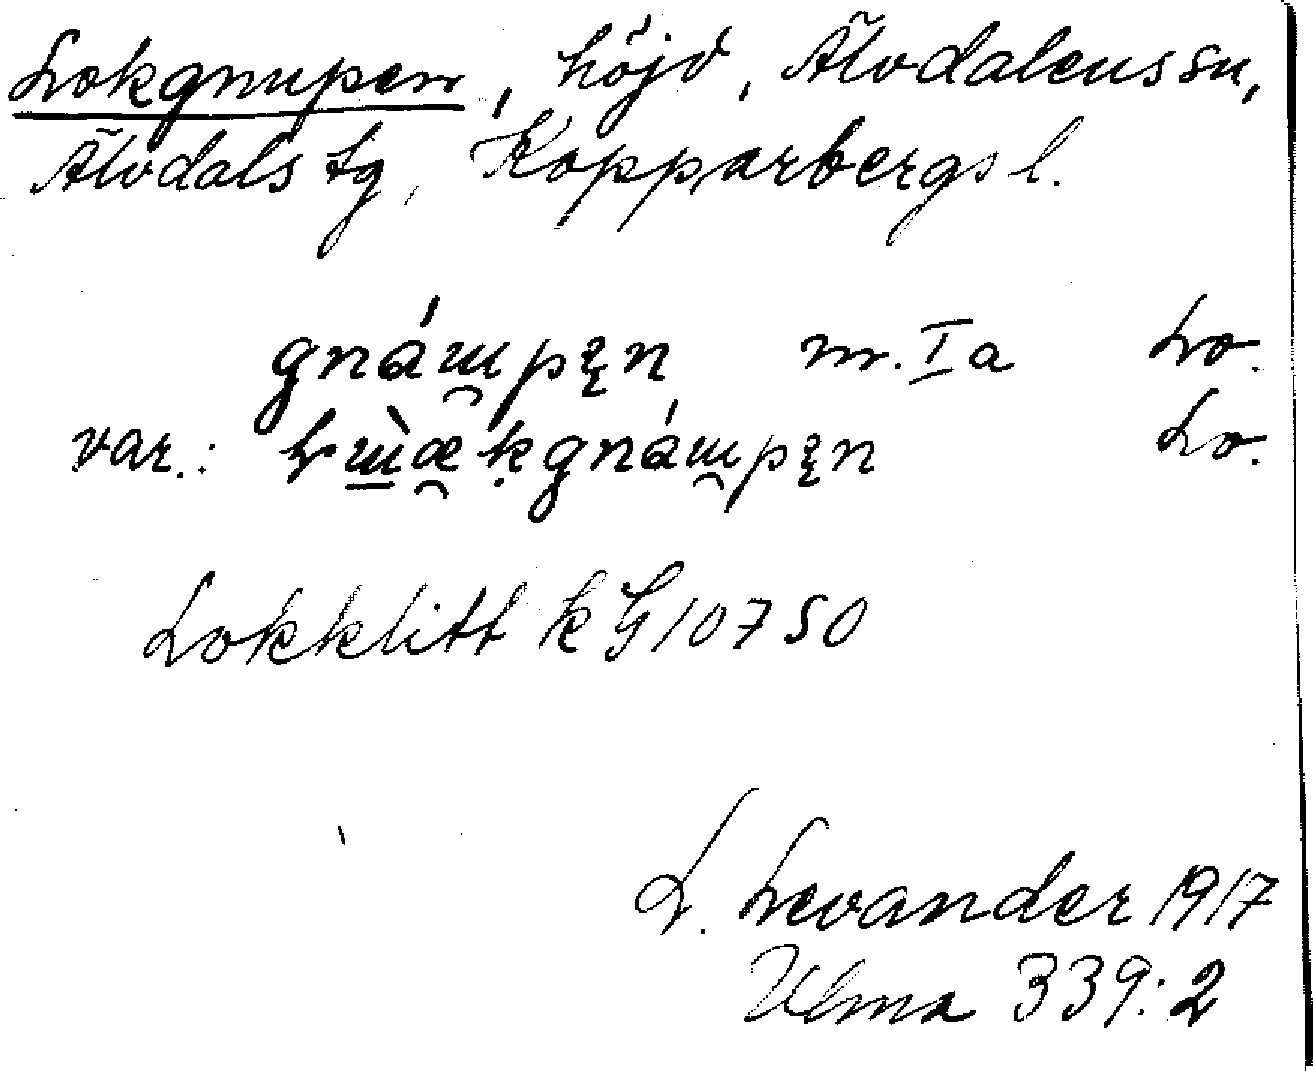 Lokgnupen, höjd, Älvdalens sn,
Älvdals tg, Kopparbergs l.
gnáɯpęn m. I a Lo.
var.: Lɯ̀ækgnáɯpęn Lo.
Lokklitt k G 10750
L. Levander 1917
Ulma 339:2